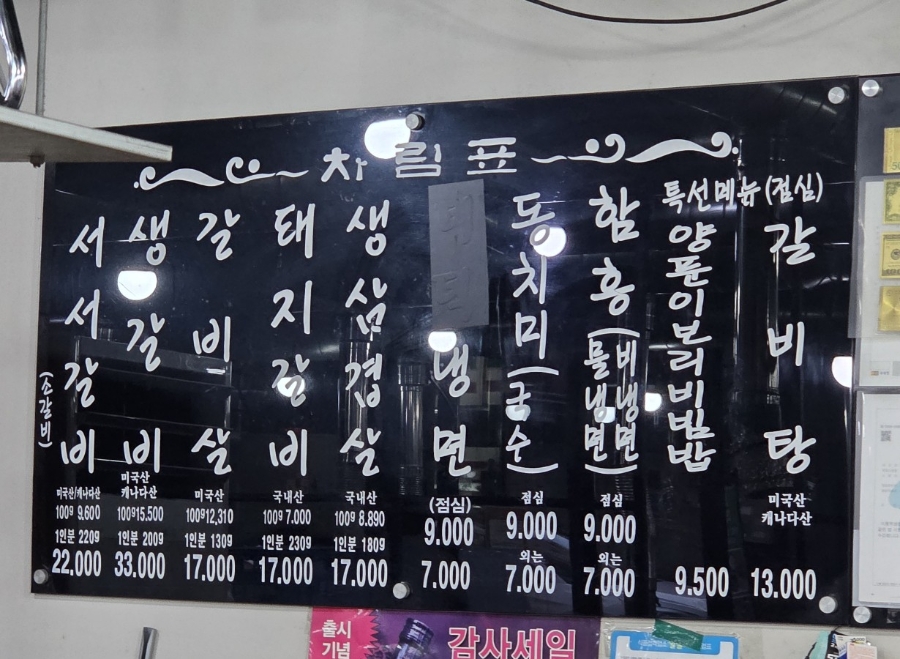 차림표
특선메뉴(점심)
서서갈비
(소갈비)
미국산/캐나다산
100g 9.600
1인분 220g
22.000
생갈비
미국산
캐나다산
100g15.500
1인분 200g
33.000
갈비살
미국산
100g12,310
1인분 130g
17.000
태지갈비
국내산
100g 7.000
1인분 230g
17.000
생삼겹살
국내산
100g 8.890
1인분 180g
17.000
냉면
(점심)
9.000
7.000
동치미(국수)
점심
9.000
외는
7.000
함흥(물냉면 비냉면)
점심
9.000
외는
7.000
양푼이보리비빔밥
9.500
갈비탕
미국산
캐나다산
13.000
출시
기념
감사세일